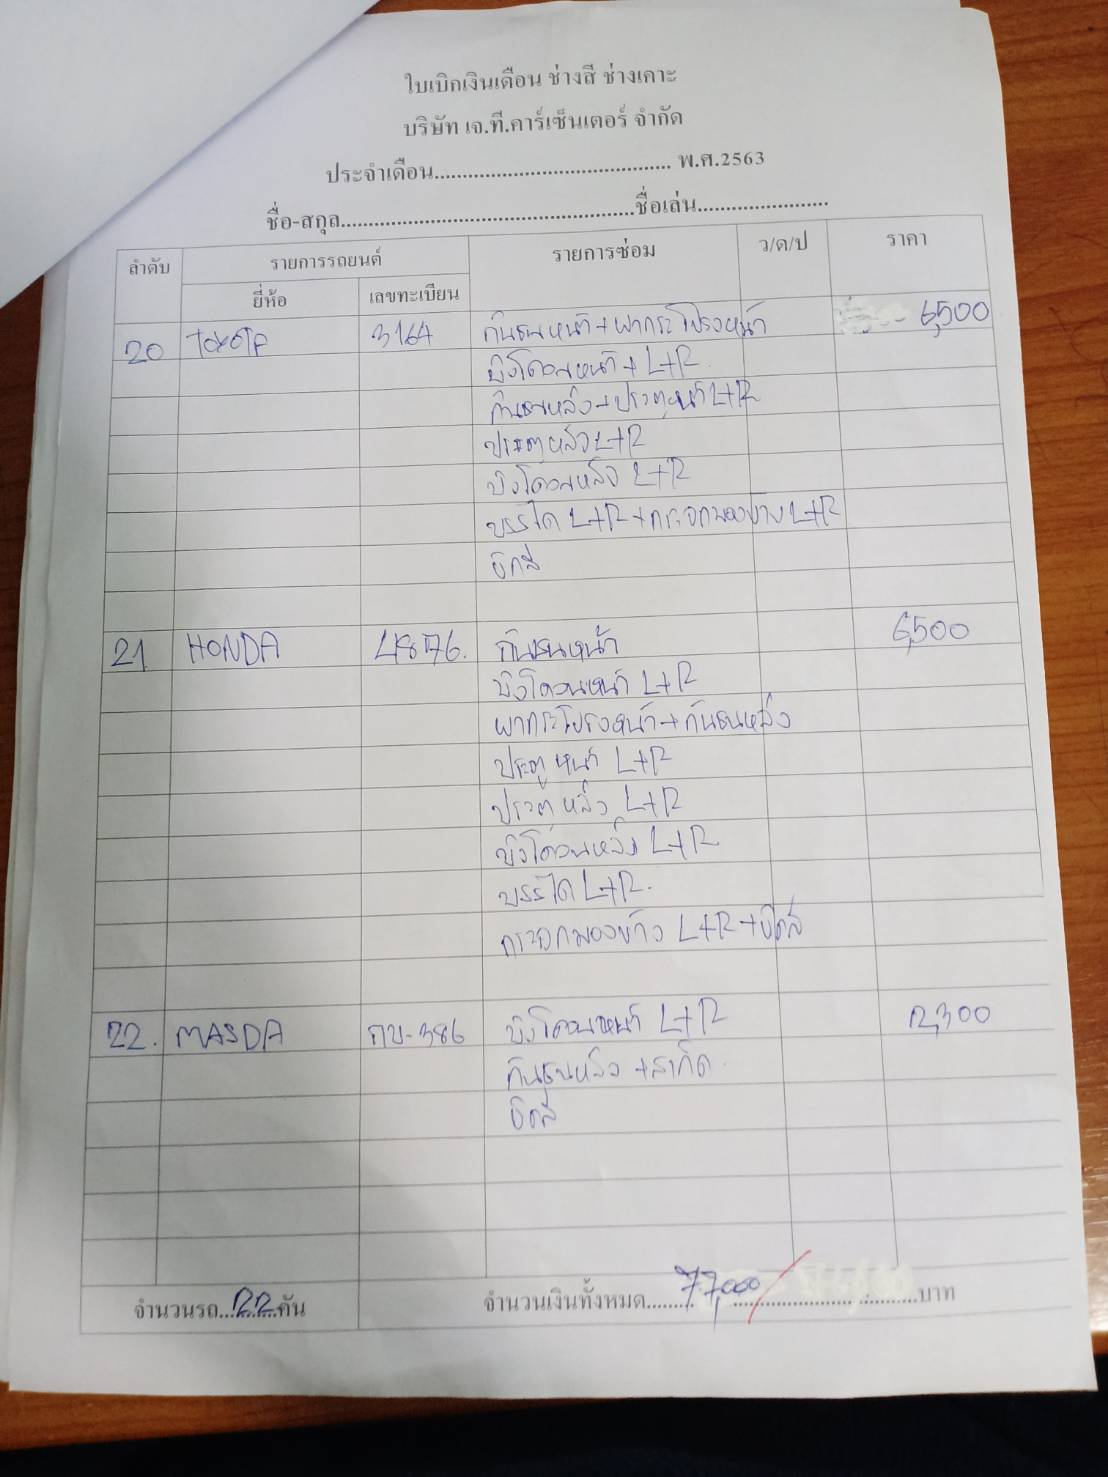 ใบเบิกเงินเดือน ช่างสี ช่างเคาะ
บริษัท เจ.ที.คาร์เซ็นเตอร์ จำกัด
ประจำเดือน.......................................... พ.ศ.2563
ชื่อ-สกุล....................................................ชื่อเล่น.......................
ลำดับ รายการรถยนต์ รายการซ่อม ว/ด/ป ราคา
ยี่ห้อ เลขทะเบียน
20 TOYOTA 3164 กันชนหน้า+ฝากระโปรงหน้า 6,500
บังโคลนหน้า+L+R
กันชนหลัง+ประตูหน้าL+R
ประตูหลังL+R
บังโคลนหลัง L+R
บรรได L+R+กระจกมองข้าง L+R
ขัดสี
21 HONDA 4876. กันชนหน้า 6,500
บังโคลนหน้า L+R
ฝากระโปรงหน้า+กันชนหลัง
ประตูหน้า L+R
ประตูหลัง L+R
บังโคลนหลัง L+R
บรรได L+R.
กระจกมองข้าง L+R+ขัดสี
22. MASDA กบ-386 บังโคลนหน้า L+R 2,300
กันชนหลัง +
ขัดสี
จำนวนรถ...22...คัน จำนวนเงินทั้งหมด........77,000..............................บาท